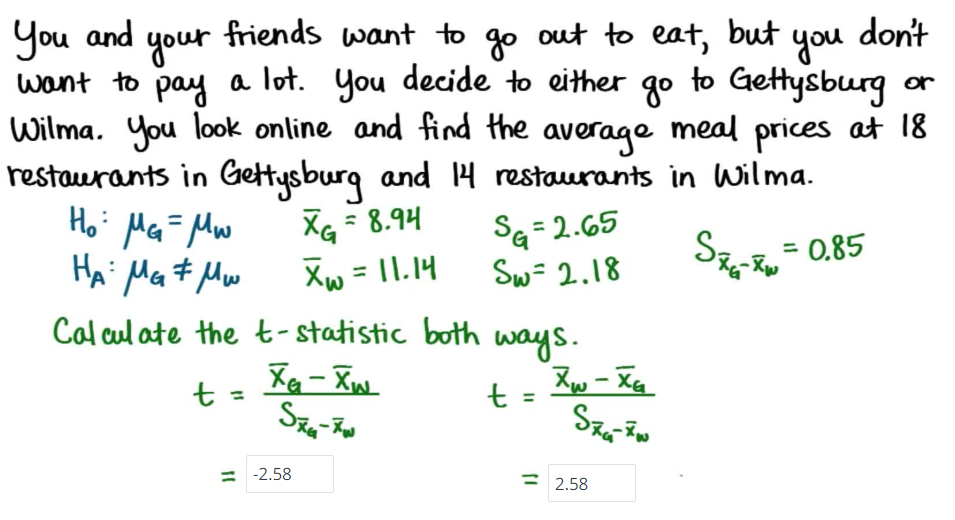 You and your friends want to go out to eat, but you don't
want to pay a lot. You decide to either go to Gettysburg or
Wilma. You look online and find the average meal prices at 18
restaurants in Gettysburg and 14 restaurants in Wilma.
H₀: μ_G = μ_W x̄_G = 8.94 S_G = 2.65
H_A: μ_G ≠ μ_W x̄_W = 11.14 S_W = 2.18 S_x̄_G-x̄_W = 0.85
Calculate the t-statistic both ways.
t = (x̄_G - x̄_W) / S_x̄_G-x̄_W t = (x̄_W - x̄_G) / S_x̄_G-x̄_W
= -2.58 = 2.58